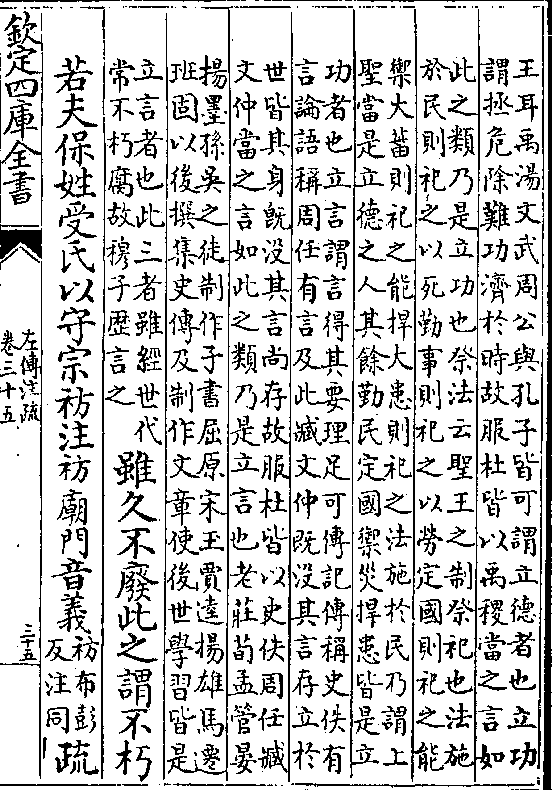 王耳禹湯文武周公與孔子皆可謂立德者也立功
謂拯危除難功濟於時故服杜皆以禹稷當之言如
此之類乃是立功也祭法云聖王之制祭祀也法施
於民則祀之以死勤事則祀之以勞定國則祀之能
禦大菑則祀之能捍大患則祀之法施於民乃謂上
聖當是立德之人其餘勤民定國禦災捍患皆是立
功者也立言謂言得其要理足可傳記傳稱史佚有
言論語稱周任有言及此臧文仲既没其言存立於
世皆其身既没其言尚存故服杜皆以史佚周任臧
文仲當之言如此之類乃是立言也老莊荀孟管晏
揚墨孫吳之徒制作子書屈原宋玉賈逵揚雄馬遷
班固以後撰集史傳及制作文章使後世學習皆是
立言者也此三者雖經世代
常不朽腐故穆子歷言之
雖久不廢此之謂不朽
若夫保姓受氏以守宗祊注祊廟門音義
祊布彭
反注同
疏
欽定四庫全書
左傳注疏
卷三十五
二十五